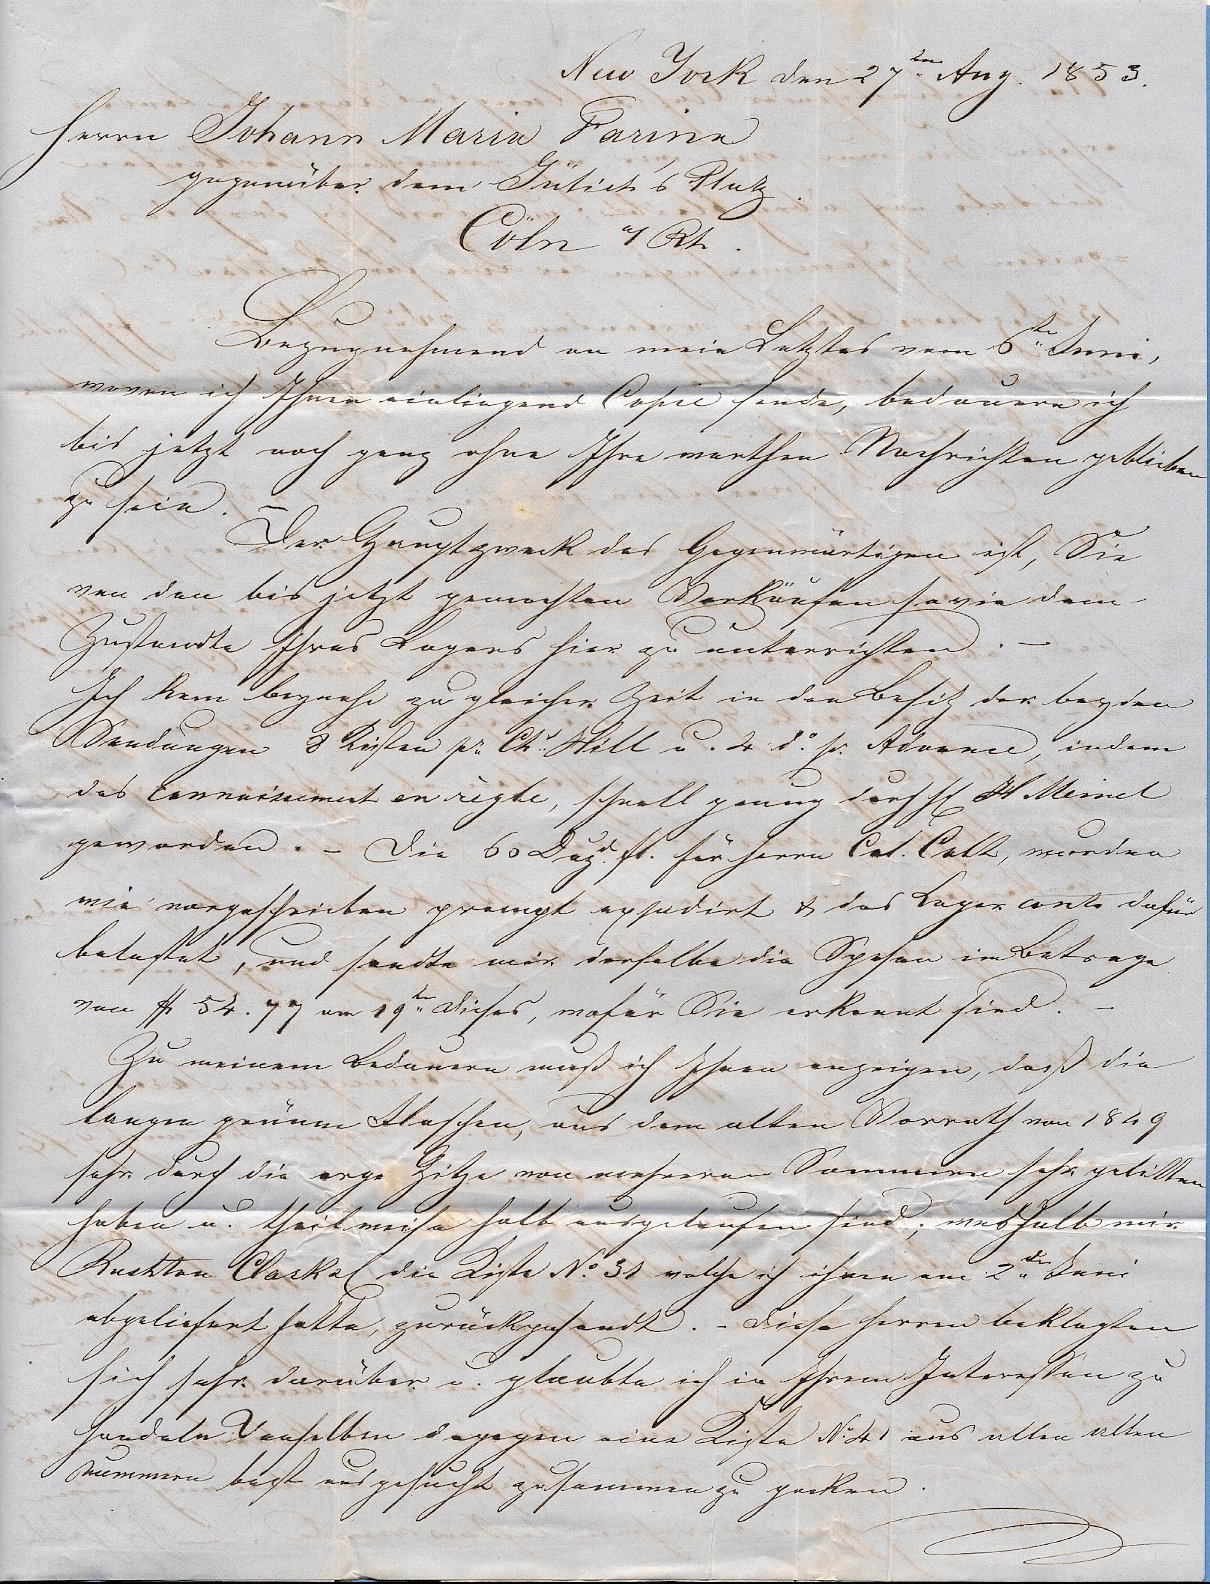 New York den 27ten Aug. 1853.
Herrn Johann Maria Farina
gegenüber dem Jülich's Platz
Cöln a/ Rh.
Bezugnehmend an mein Letztes vom 6ten Juni,
wovon ich Ihnen einliegend Copie sende, bedauere ich
bis jetzt noch ganz ohne Ihre werthen Nachrichten geblieben
zu sein. –
Der Hauptzweck des Gegenwärtigen ist, Sie
von den bis jetzt gemachten Verkäufen sowie dem
Zustande Ihres Lagers hier zu unterrichten. –
Ich kam beynahe zu gleicher Zeit in den Besitz der beyden
Sendungen 8 Kisten pr. Chs. Hill u. 4 do. pr. Advance, indem
das connaissement en règle, schnell genug durch
geworden. – Die 60 Duzd. fl. für Herrn Cal. wurden
wie vorgeschrieben prompt expedirt & das Lager conto dafür
belastet, und sandte mir derselbe die Spesen im Betrage
von $ 54.77 am 19ten dieses, wofür Sie erkannt sind. –
Zu meinem Bedauern muß ich Ihnen anzeigen, daß die
langen grünen Flaschen, aus dem alten Vorrath von 1849
sehr durch die arge Hitze von mehreren Sommern sehr gelitten
haben u. theilweise halb ausgelaufen sind; weshalb mir
Rushton Clark & die Kiste No. 31 welche ich ihnen am 2ten Juni
abgeliefert hatte, zurückgesandt. – Diese Herren beklagten
sich sehr darüber u. glaubte ich in Ihrem Interessen zu
handeln denselben dagegen eine Kiste No. 41 aus allen alten
nummern best ausgesucht zusammen zu packen.